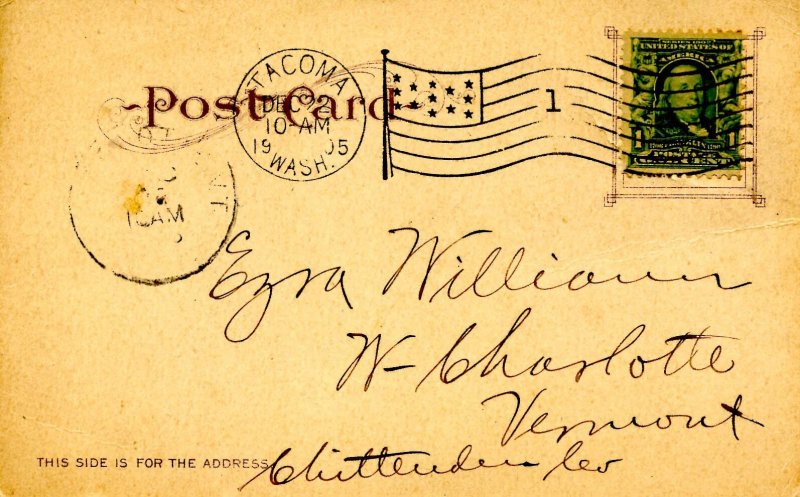 Post Card
TACOMA
DEC 2
10-AM
1905
WASH.
1
SERIES 1902
UNITED STATES OF
AMERICA
1 1
POSTAGE
ONE CENT
AM
Ezra Williams
W- Charlotte
Vermont
Chittenden Co
THIS SIDE IS FOR THE ADDRESS